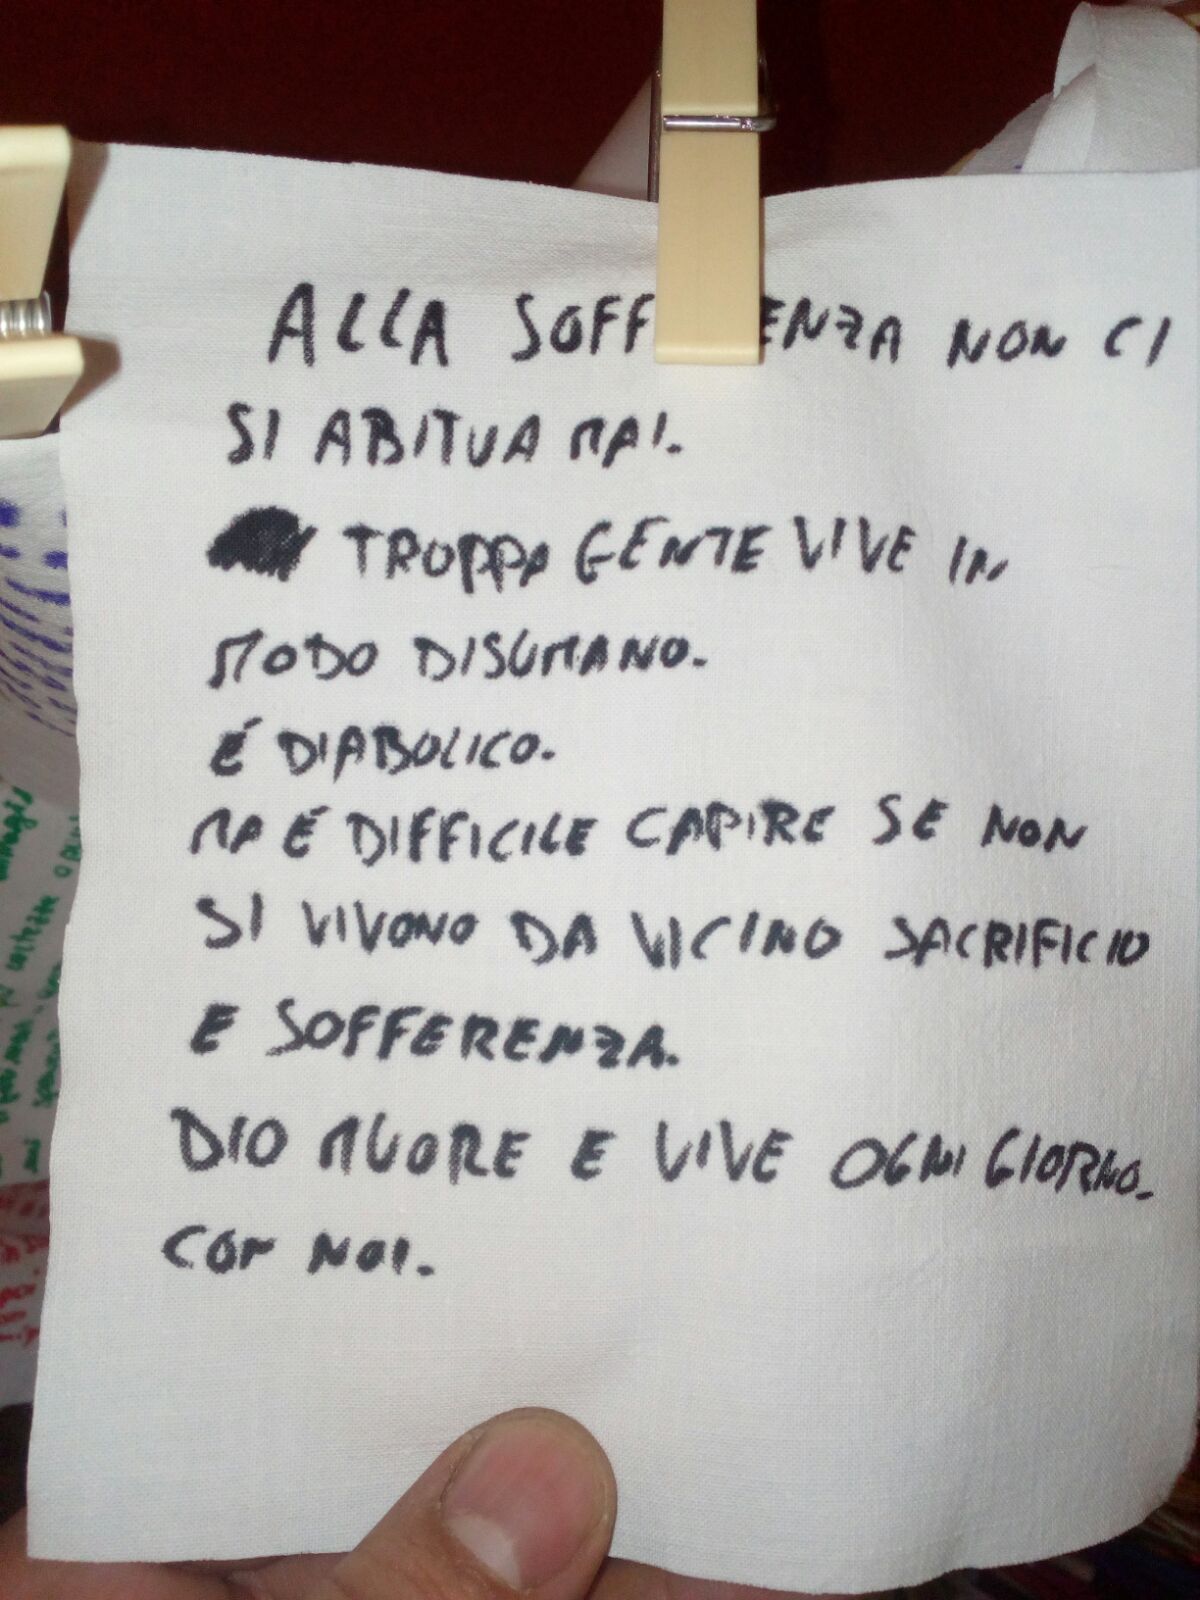 ALLA SOFF ENZA NON CI
SI ABITUA MAI.
TROPPA GENTE VIVE IN
MODO DISUMANO.
É DIABOLICO.
MA É DIFFICILE CAPIRE SE NON
SI VIVONO DA VICINO SACRIFICIO
E SOFFERENZA.
DIO MUORE E VIVE OGNI GIORNO.
CON NOI.